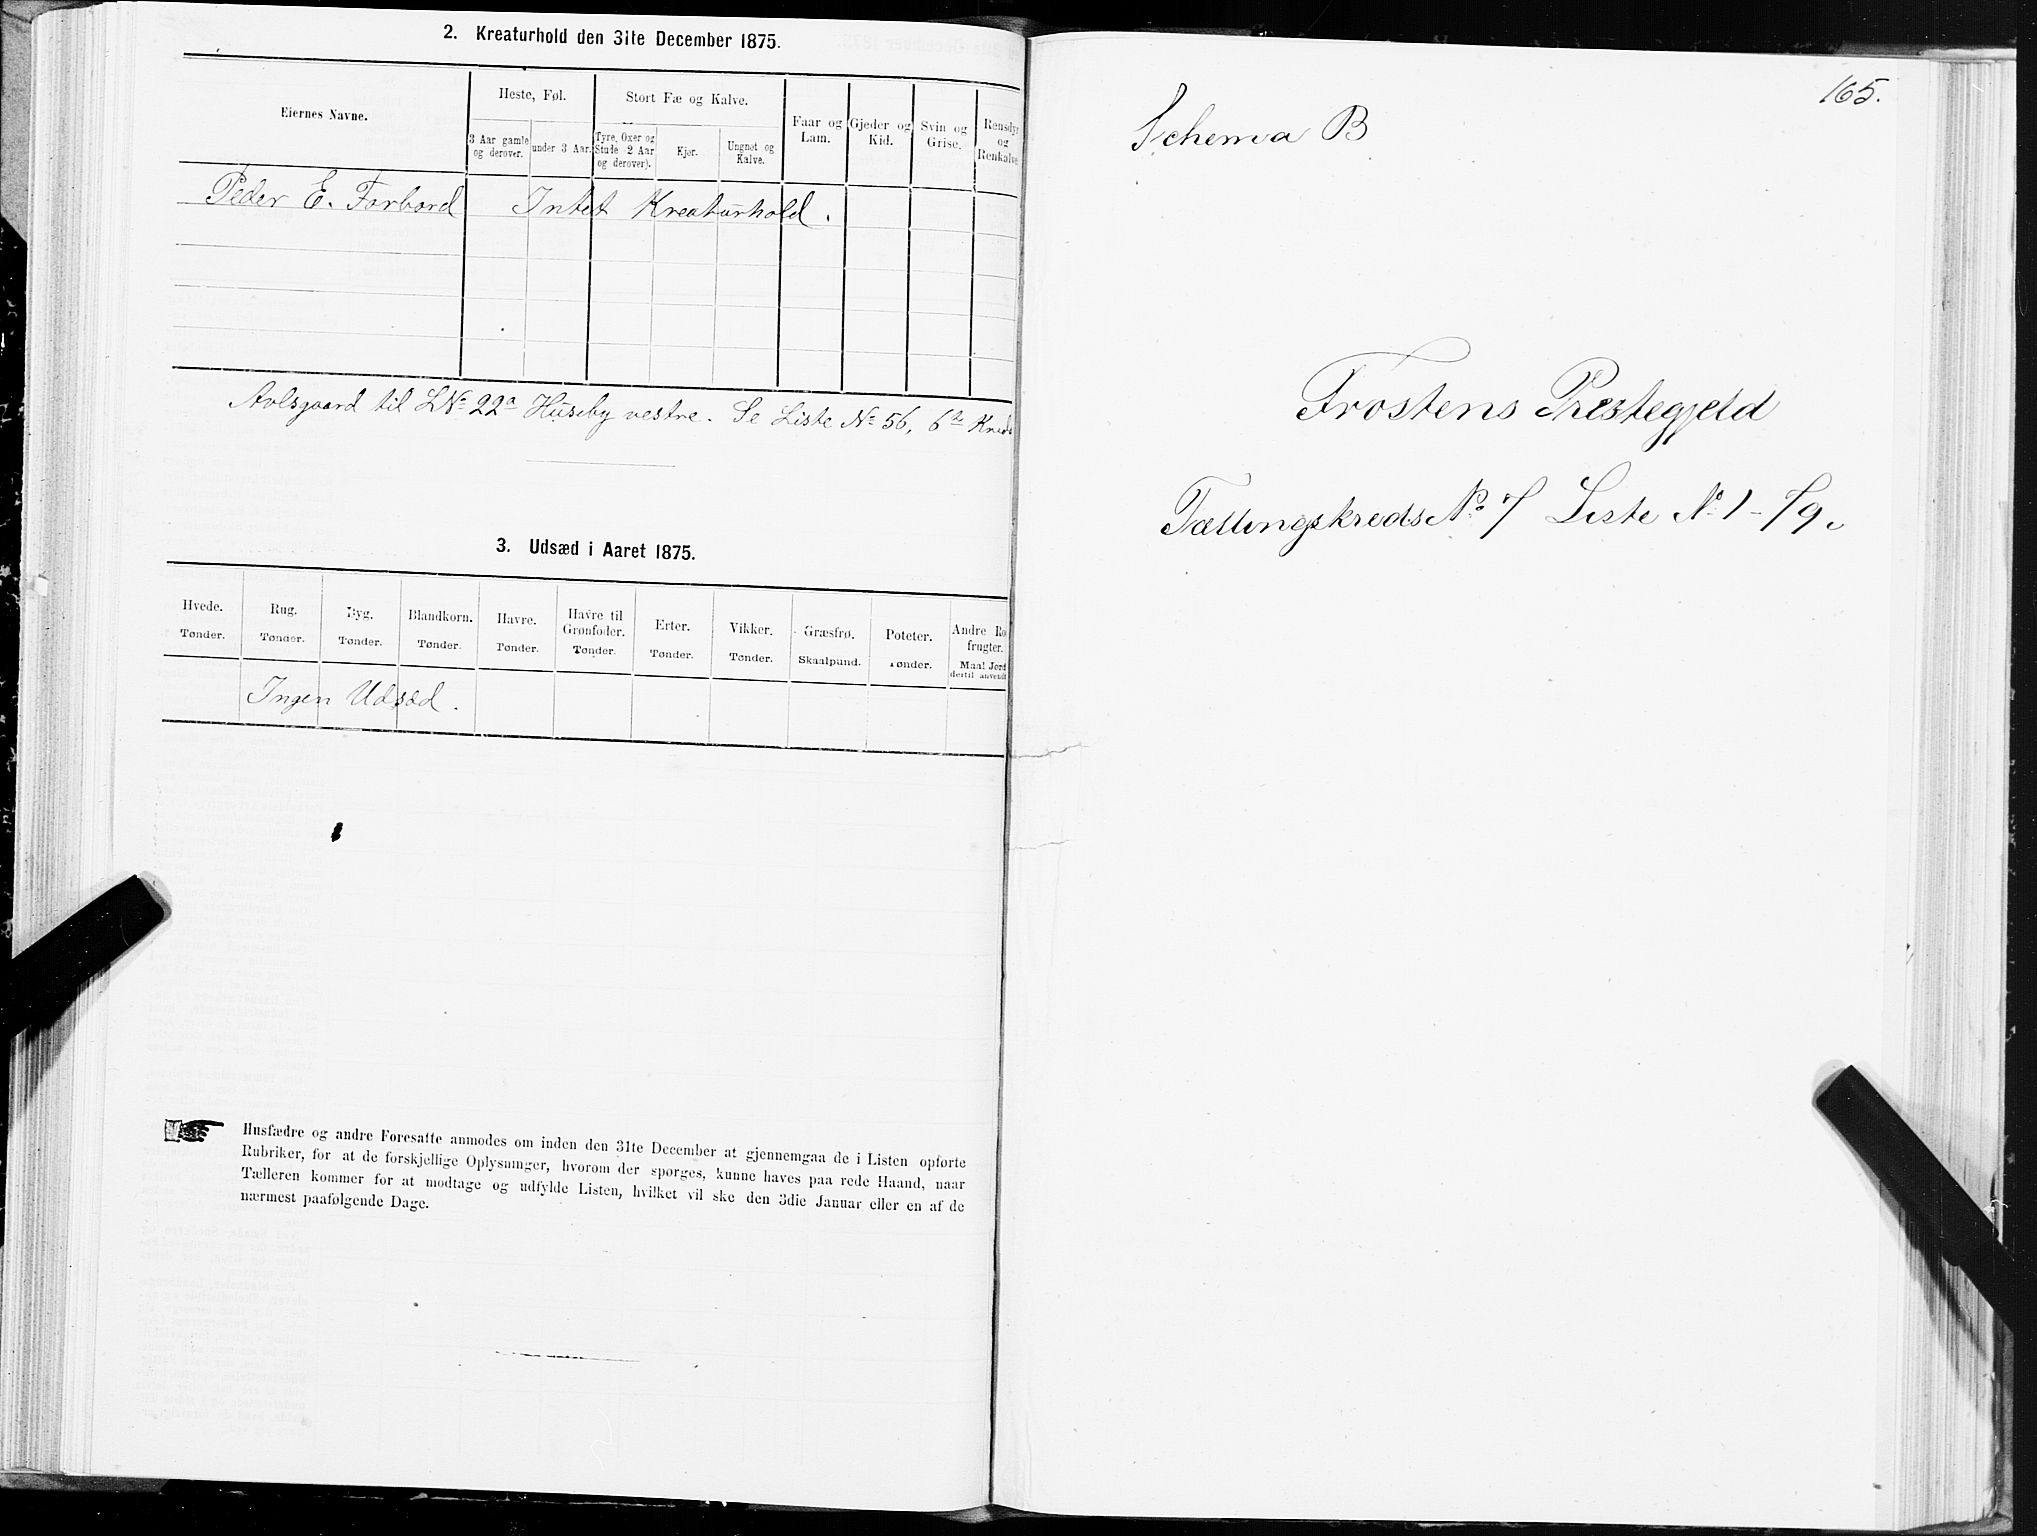 2. Kreaturhold den 31te December 1875.
Eiernes Navne.
Heste, Føl.
Stort Fæ og Kalve.
Faar og Lam.
Gjeder og Kid.
Svin og Grise.
Rensdyr og Renkalve
3 Aar gamle og derover.
under 3 Aar.
Tyre, Oxer og Stude 2 Aar og derover).
Kjør.
Ungnøt og Kalve.
Peder E. Forbord Intet Kreaturhold.
Avlsgaard til LNo 22a Huseby vestre. Se Liste No 56, 6te Kreds
3. Udsæd i Aaret 1875.
Hvede. Tønder.
Rug. Tønder.
Byg. Tønder.
Blandkorn. Tønder.
Havre. Tønder.
Havre til Grønfoder. Tønder.
Erter. Tønder.
Vikker. Tønder.
Græsfrø. Skaalpund.
Poteter. Tønder.
Andre Ro frugter. Maal Jord dertil anvendt
Ingen Udsæd.
Husfædre og andre Foresatte anmodes om inden den 31te December at gjennemgaa de i Listen opførte
Rubriker, for at de forskjellige Oplysninger, hvorom der spørges, kunne haves paa rede Haand, naar
Tælleren kommer for at modtage og udfylde Listen, hvilket vil ske den 3die Januar eller en af de
nærmest paafølgende Dage.
165.
Schema B
Frostens Prestegjeld
Tællingskreds No 7 Liste No 1-79.